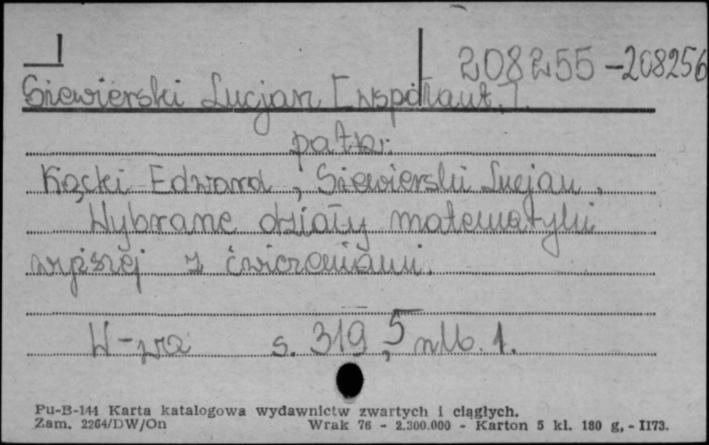 208255-208256
Siewierski Lucjan [współaut.].
patrz:
Kącki Edward, Siewierski Lucjan.
Wybrane działy matematyki
wyższej z ćwiczeniami.
W-wa s. 319, 5 nlb. 1.
Pu-B-144 Karta katalogowa wydawnictw zwartych i ciągłych.
Zam. 2264/DW/On Wrak 76 - 2.300.000 - Karton 5 kl. 180 g, - II73.